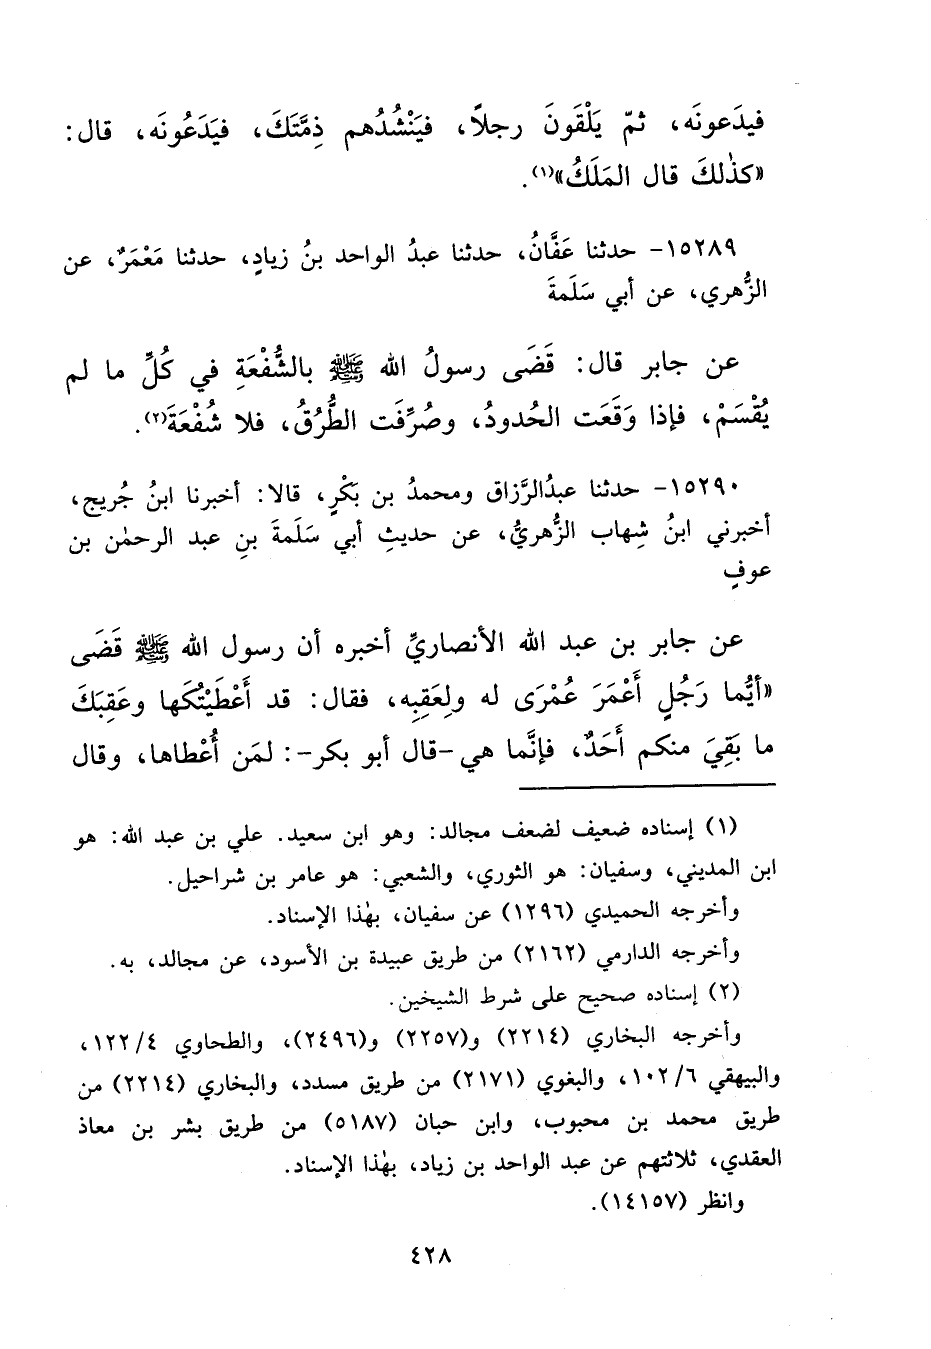 فيدَعونَه، ثمّ يَلْقَونَ رجلاً، فيَنْشُدُهم ذِمَّتَكَ، فيَدَعُونَه، قال:
«كذٰلكَ قال المَلَكُ»(١).
١٥٢٨٩- حدثنا عَفَّانُ، حدثنا عبدُ الواحد بنُ زيادٍ، حدثنا مَعْمَرٌ، عن
الزُّهري، عن أبي سَلَمةَ
عن جابر قال: قَضَى رسولُ الله ﷺ بالشُّفْعَةِ في كُلِّ ما لم
يُقْسَمْ، فإذا وَقَعَت الحُدودُ، وصُرِّفَت الطُّرُقُ، فلا شُفْعَةَ(٢).
١٥٢٩٠- حدثنا عبدُالرَّزاق ومحمدُ بن بَكْرٍ، قالا: أخبرنا ابنُ جُريج،
أخبرني ابنُ شِهاب الزُّهريُّ، عن حديثِ أبي سَلَمةَ بنِ عبد الرحمٰن بن
عوفٍ
عن جابر بن عبد الله الأنصاريِّ أخبره أن رسول الله ﷺ قَضَى
«أيُّما رَجُلٍ أَعْمَرَ عُمْرَى له ولِعَقِبِه، فقال: قد أَعْطَيْتُكَها وعَقِبَكَ
ما بَقِيَ منكم أَحَدٌ، فإنَّما هي -قال أبو بكر-: لمَن أُعْطاها، وقال
(١) إسناده ضعيف لضعف مجالد: وهو ابن سعيد. علي بن عبد الله: هو
ابن المديني، وسفيان: هو الثوري، والشعبي: هو عامر بن شراحيل.
وأخرجه الحميدي (١٢٩٦) عن سفيان، بهٰذا الإسناد.
وأخرجه الدارمي (٢١٦٢) من طريق عبيدة بن الأسود، عن مجالد، به.
(٢) إسناده صحيح على شرط الشيخين.
وأخرجه البخاري (٢٢١٤) و(٢٢٥٧) و(٢٤٩٦)، والطحاوي ١٢٢/٤،
والبيهقي ١٠٢/٦، والبغوي (٢١٧١) من طريق مسدد، والبخاري (٢٢١٤) من
طريق محمد بن محبوب، وابن حبان (٥١٨٧) من طريق بشر بن معاذ
العقدي، ثلاثتهم عن عبد الواحد بن زياد، بهٰذا الإسناد.
وانظر (١٤١٥٧).
٤٢٨